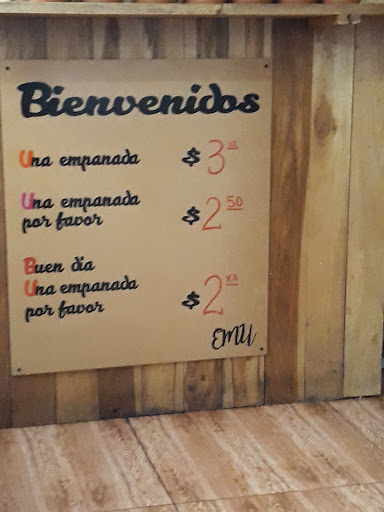 Bienvenidos
Una empanada $ 3 xx
Una empanada
por favor $ 2 50
Buen día
Una empanada
por favor $ 2 xx
EMU